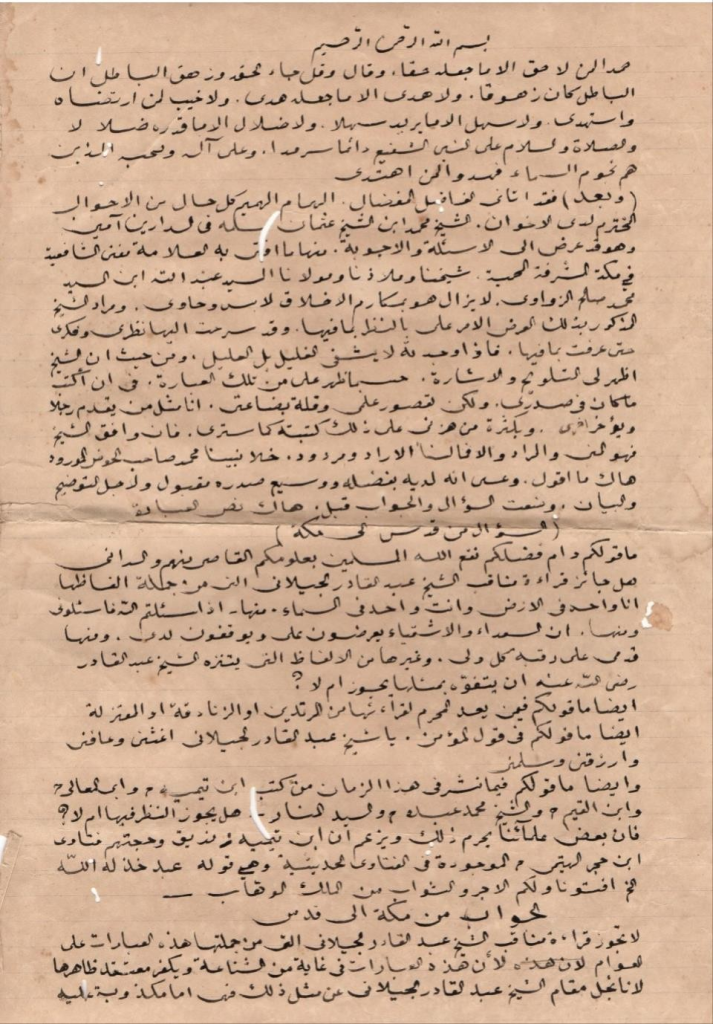 بسم الله الرحمن الرحيم
حمدا لمن لا حق الا ما جعله حقا، وقال وقل جاء الحق وزهق الباطل ان
الباطل كان زهوقا. ولا هدى الا ما جعله هدى. ولا خيب لمن ارتضاه
واستهدى. ولا سهل الا ما يريد سهلا. ولا ضلال الا ما قدره ضلالا
والصلاة والسلام على النبي الشفيع دائما سرمدا. وعلى آله وصحبه الذين
هم نجوم السماء فهدوا لمن اهتدى
(وبعد) فقد اتانى الفاضل المفضال. الهمام الهمير كل حال من الاحوال
المحترم لدى الاخوان. الشيخ محمد ابن الشيخ عثمان سلمه فى الدارين آمين
وهو قد عرض الى الاسئلة والاجوبة. منها ما افتى به العلامة مفتى الشافعية
فى مكة المشرفة المحمية. شيخنا وملاذنا ومولانا السيد عبد الله ابن السيد
محمد صالح الزواوى. لا يزال هو بمكارم الاخلاق لابس وحاوى. ومراد الشيخ
المذكور بذلك العرض الامر على بالنظر بما فيها. وقد سرحت اليها نظرى وفكرى
حتى عرفت بما فيها. فاذا وجدته لا يشفى الغليل بل العليل. ومن حيث ان الشيخ
اظهر لى التلويح والاشارة. حسبما ظهر على من تلك العبارة. فى ان اكتب
ما كان فى صدرى. ولكن لقصور علمى وقلة بضاعتى. انا مثل من يقدم رجلا
ويؤخر اخرى. وبكثرة من هزنى على ذلك كتبته كما سترى. فان وافق الشيخ
فهو المنى والمراد والا فالنا الا راد ومردود. خلا نبينا محمد صاحب الحوض المورود
هاك ما اقول. وعسى انه لديه بفضله ووسيع صدره مقبول ولاجل التوضيح
والبيان. وضعت السؤال والجواب قبل. هاك نص العبارة
(السؤال من قدس الى مكة)
ما قولكم دام فضلكم نفع الله المسلمين بعلومكم القاصى منهم والدانى
هل جائز قراءة مناقب الشيخ عبد القادر الجيلانى التى من جملة الفاظها
انا واحد فى الارض وانت واحد فى السماء. منها. اذا سئلتم الله فاسئلوه بى
ومنها. ان السعداء والاشقياء يعرضون على ويوقفون لدى. ومنها
قدمى على رقبة كل ولى. وغيرها من الالفاظ التى يتنزه الشيخ عبد القادر
رضى الله عنه ان يتفوه بمثلها يجوز ام لا؟
ايضا ما قولكم فيمن يعد المحرم لقراءتها من المرتدين او الزنادقة او المعتزلة
ايضا ما قولكم فى قول المؤمن. يا شيخ عبد القادر الجيلانى اغثنى وعافنى
وارزقنى وسلمنى
وايضا ما قولكم فيما نشر فى هذا الزمان من كتب ابن تيمية وابى المعالى
وابن القيم والشيخ محمد عبده والسيد المنار هل يجوز النظر فيها ام لا؟
فان بعض علمائنا يحرم ذلك ويزعم ان ابن تيمية زنديق وحجتهم فتاوى
ابن حجر الهيتمى الموجودة فى الفتاوى الحديثية وهى قوله عبد خذله الله
الخ افتونا ولكم الاجر والثواب من الملك الوهاب
الجواب من مكة الى قدس
لا تجوز قراءة مناقب الشيخ عبد القادر الجيلانى التى من جملتها هذه العبارات على
العوام لان هذه لأن هذه العبارات فى غاية من الشناعة ويكفر معتقد ظاهرها
لانا نجل مقام الشيخ عبد القادر الجيلانى عن مثل ذلك فهى اما مكذوبة عليه